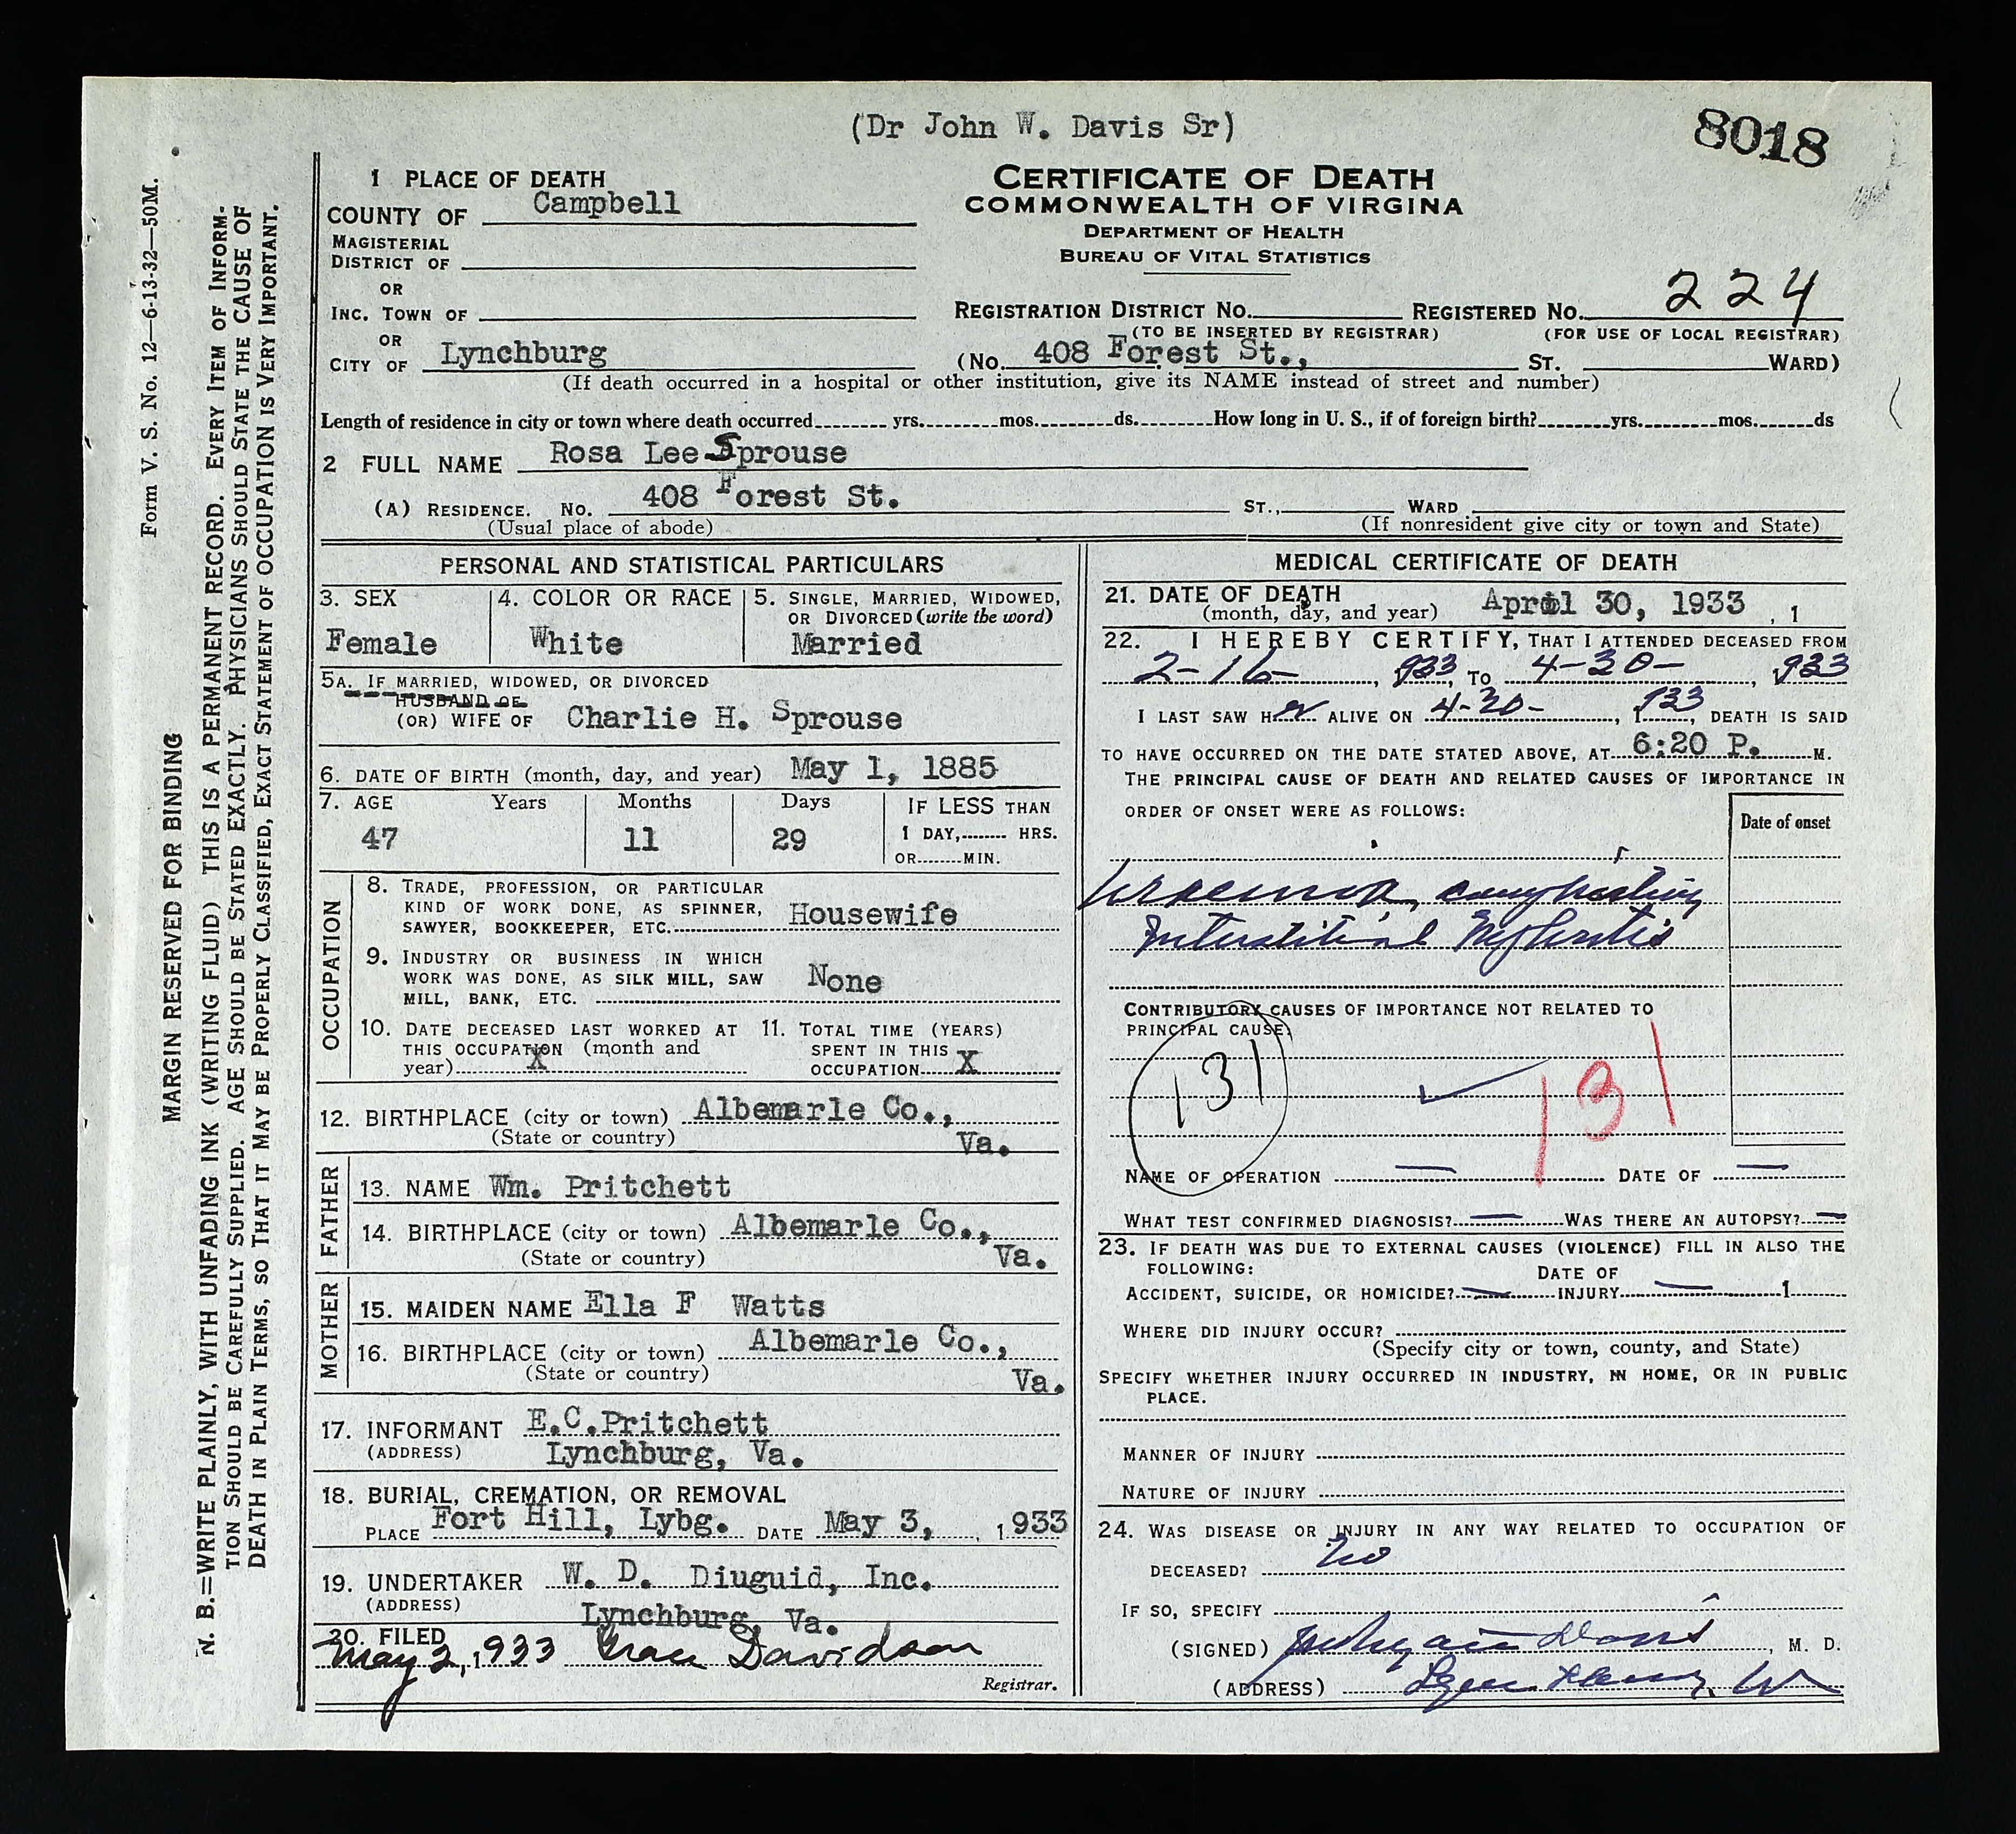 (Dr John W. Davis Sr)
8018
Form V. S. No. 12—6-13-32—50M.
MARGIN RESERVED FOR BINDING
N. B.=WRITE PLAINLY, WITH UNFADING INK (WRITING FLUID) THIS IS A PERMANENT RECORD. EVERY ITEM OF INFORM-
TION SHOULD BE CAREFULLY SUPPLIED. AGE SHOULD BE STATED EXACTLY. PHYSICIANS SHOULD STATE THE CAUSE OF
DEATH IN PLAIN TERMS, SO THAT IT MAY BE PROPERLY CLASSIFIED, EXACT STATEMENT OF OCCUPATION IS VERY IMPORTANT.
1 PLACE OF DEATH
COUNTY OF Campbell
MAGISTERIAL
DISTRICT OF
OR
INC. TOWN OF
OR
CITY OF Lynchburg
CERTIFICATE OF DEATH
COMMONWEALTH OF VIRGINA
DEPARTMENT OF HEALTH
BUREAU OF VITAL STATISTICS
REGISTRATION DISTRICT NO. REGISTERED NO. 224
(TO BE INSERTED BY REGISTRAR) (FOR USE OF LOCAL REGISTRAR)
(No. 408 Forest St., ST. WARD)
(If death occurred in a hospital or other institution, give its NAME instead of street and number)
Length of residence in city or town where death occurred yrs. mos. ds. How long in U. S., if of foreign birth? yrs. mos. ds
2 FULL NAME Rosa Lee Sprouse
(A) RESIDENCE. No. 408 Forest St. ST., WARD
(Usual place of abode) (If nonresident give city or town and State)
PERSONAL AND STATISTICAL PARTICULARS
3. SEX 4. COLOR OR RACE 5. SINGLE, MARRIED, WIDOWED,
OR DIVORCED (write the word)
Female White Married
5A. IF MARRIED, WIDOWED, OR DIVORCED
HUSBAND OF
(OR) WIFE OF Charlie H. Sprouse
6. DATE OF BIRTH (month, day, and year) May 1, 1885
7. AGE Years Months Days IF LESS THAN
47 11 29 1 DAY, HRS.
OR MIN.
OCCUPATION
8. TRADE, PROFESSION, OR PARTICULAR
KIND OF WORK DONE, AS SPINNER,
SAWYER, BOOKKEEPER, ETC. Housewife
9. INDUSTRY OR BUSINESS IN WHICH
WORK WAS DONE, AS SILK MILL, SAW
MILL, BANK, ETC. None
10. DATE DECEASED LAST WORKED AT
THIS OCCUPATION (month and
year) X
11. TOTAL TIME (YEARS)
SPENT IN THIS
OCCUPATION X
12. BIRTHPLACE (city or town) Albemarle Co.,
(State or country) Va.
FATHER
13. NAME Wm. Pritchett
14. BIRTHPLACE (city or town) Albemarle Co.,
(State or country) Va.
MOTHER
15. MAIDEN NAME Ella F Watts
16. BIRTHPLACE (city or town) Albemarle Co.,
(State or country) Va.
17. INFORMANT E.C.Pritchett
(ADDRESS) Lynchburg, Va.
18. BURIAL, CREMATION, OR REMOVAL
PLACE Fort Hill, Lybg. DATE May 3, 1933
19. UNDERTAKER W. D. Diuguid, Inc.
(ADDRESS) Lynchburg, Va.
20. FILED
May 2, 1933 Grace Davidson
Registrar.
MEDICAL CERTIFICATE OF DEATH
21. DATE OF DEATH
(month, day, and year) April 30, 1933 , 1
22. I HEREBY CERTIFY, THAT I ATTENDED DECEASED FROM
2-16- , 933, TO 4-30- , 933
I LAST SAW HER ALIVE ON 4-30- , 1933, DEATH IS SAID
TO HAVE OCCURRED ON THE DATE STATED ABOVE, AT 6:20 P. M.
THE PRINCIPAL CAUSE OF DEATH AND RELATED CAUSES OF IMPORTANCE IN
ORDER OF ONSET WERE AS FOLLOWS:
Date of onset
Uraemia, complicating
Interstitial Nephritis
CONTRIBUTORY CAUSES OF IMPORTANCE NOT RELATED TO
PRINCIPAL CAUSE:
131 131
NAME OF OPERATION — DATE OF —
WHAT TEST CONFIRMED DIAGNOSIS? — WAS THERE AN AUTOPSY? —
23. IF DEATH WAS DUE TO EXTERNAL CAUSES (VIOLENCE) FILL IN ALSO THE
FOLLOWING:
ACCIDENT, SUICIDE, OR HOMICIDE? — DATE OF INJURY — 1
WHERE DID INJURY OCCUR?
(Specify city or town, county, and State)
SPECIFY WHETHER INJURY OCCURRED IN INDUSTRY, IN HOME, OR IN PUBLIC
PLACE.
MANNER OF INJURY
NATURE OF INJURY
24. WAS DISEASE OR INJURY IN ANY WAY RELATED TO OCCUPATION OF
DECEASED? No
IF SO, SPECIFY
(SIGNED) Davis , M. D.
(ADDRESS)